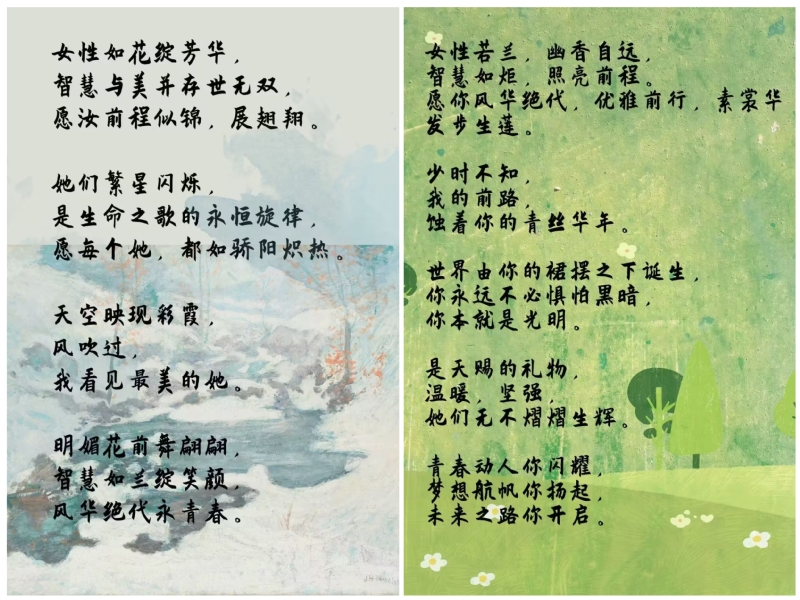 女性如花绽芳华，
智慧与美并存世无双，
愿汝前程似锦，展翅翔。
她们繁星闪烁，
是生命之歌的永恒旋律，
愿每个她，都如骄阳炽热。
天空映现彩霞，
风吹过，
我看见最美的她。
明媚花前舞翩翩，
智慧如兰绽笑颜，
风华绝代永青春。
女性若兰，幽香自远，
智慧如炬，照亮前程。
愿你风华绝代，优雅前行，素裳华
发步生莲。
少时不知，
我的前路，
蚀着你的青丝华年。
世界由你的裙摆之下诞生，
你永远不必惧怕黑暗，
你本就是光明。
是天赐的礼物，
温暖，坚强，
她们无不熠熠生辉。
青春动人你闪耀，
梦想航帆你扬起，
未来之路你开启。